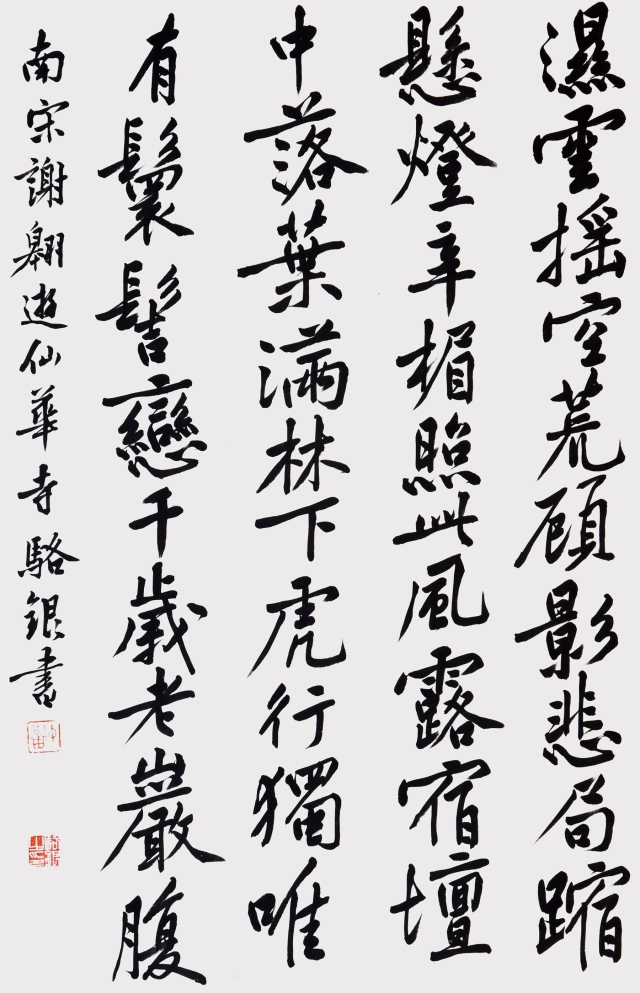 濕雲搖空荒顧影悲局蹜
懸燈辛楣照此風露宿壇
中落葉滿林下虎行獨唯
有鬟髻戀千歲老巖腹
南宋謝翱遊仙華寺駱銀書